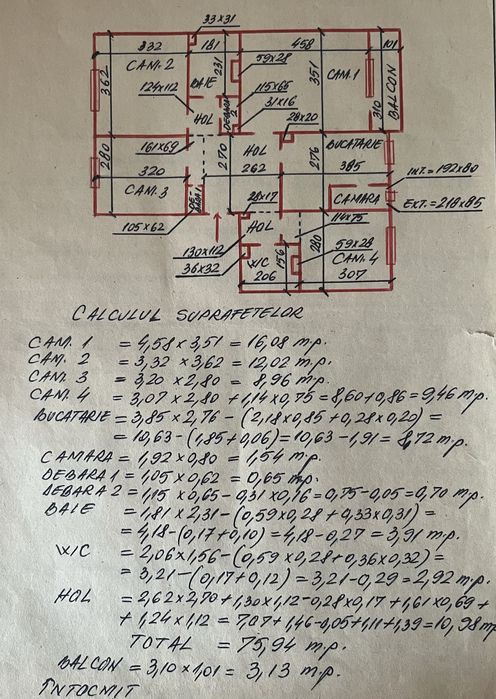 33×31
332
181
458
101
CAM. 2
BAIE
231
59×28
351
CAM. 1
BALCON
362
124×112
115×65
31×16
310
HOL
DEBARA 2
28×20
161×69
HOL
BUCATARIE
280
320
270
262
276
385
INT.=192×80
CAM. 3
DEBARA 1
28×17
CAMARA
EXT.=218×85
105×62
HOL
114×75
130×112
280
59×28
36×32
W/C
156
CAM. 4
206
307
CALCULUL SUPRAFETELOR
CAM. 1 = 4,58×3,51 = 16,08 m.p.
CAM. 2 = 3,32×3,62 = 12,02 m.p.
CAM. 3 = 3,20×2,80 = 8,96 m.p.
CAM. 4 = 3,07×2,80+1,14×0,75=8,60+0,86=9,46 m.p.
BUCATARIE = 3,85×2,76-(2,18×0,85+0,28×0,20)=
= 10,63-(1,85+0,06)=10,63-1,91=8,72 m.p.
CAMARA = 1,92×0,80 = 1,54 m.p.
DEBARA 1 = 1,05×0,62 = 0,65 m.p.
DEBARA 2 = 1,15×0,65-0,31×0,16=0,75-0,05=0,70 m.p.
BAIE = 1,81×2,31-(0,59×0,28+0,33×0,31)=
= 4,18-(0,17+0,10)=4,18-0,27=3,91 m.p.
W/C = 2,06×1,56-(0,59×0,28+0,36×0,32)=
= 3,21-(0,17+0,12)=3,21-0,29=2,92 m.p.
HOL = 2,62×2,70+1,30×1,12-0,28×0,17+1,61×0,69+
+1,24×1,12=7,07+1,46-0,05+1,11+1,39=10,98 m.p.
TOTAL = 75,94 m.p.
BALCON = 3,10×1,01 = 3,13 m.p.
ÎNTOCMIT